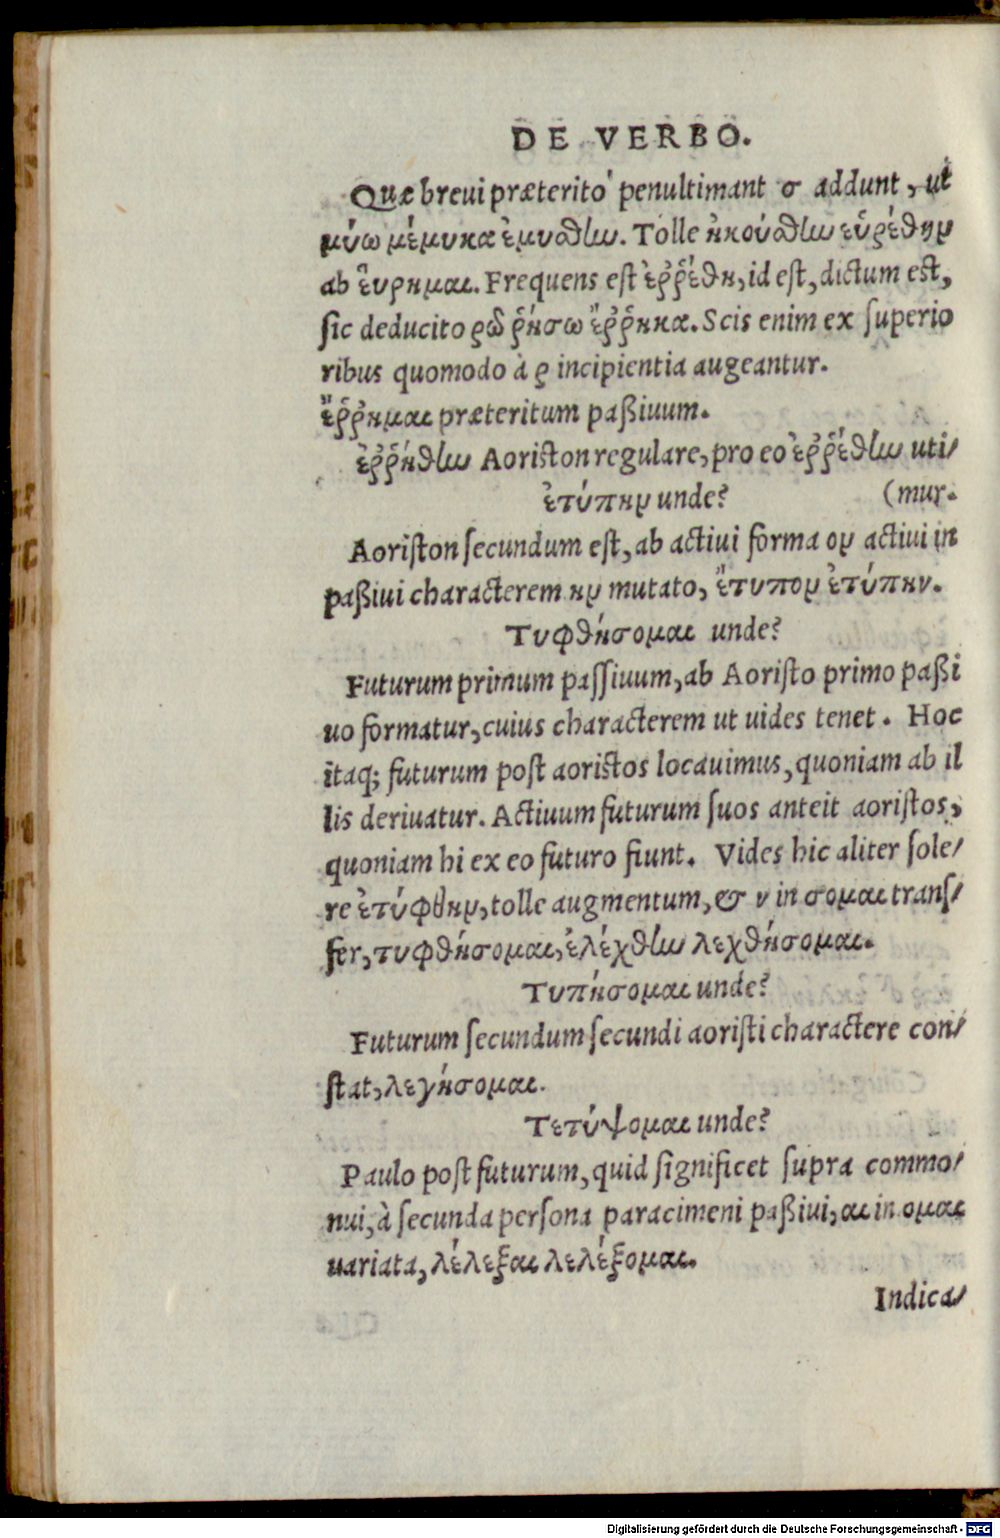 DE VERBO.
Quæ breui præterito penultimant σ addunt, ut
μύω μέμυκα ἐμυσθίω. Tolle ἠκούσθίω εὑρέθην
ab εὕρημαι. Frequens est ἐῤῥέθη, id est, dictum est,
sic deducito ῥῶ ῥήσω ἔῤῥηκα. Scis enim ex superio
ribus quomodo à ρ incipientia augeantur.
ἔῤῥημαι præteritum paßiuum.
ἐῤῥήθίω Aoriston regulare, pro eo ἐῤῥέθίω uti/
ἐτύπην unde? (mur.
Aoriston secundum est, ab actiui forma ον actiui in
paßiui characterem ην mutato, ἔτυπον ἐτύπην.
Τυφθήσομαι unde?
Futurum primum passiuum, ab Aoristo primo paßi
uo formatur, cuius characterem ut uides tenet. Hoc
itaq; futurum post aoristos locauimus, quoniam ab il
lis deriuatur. Actiuum futurum suos anteit aoristos,
quoniam hi ex eo futuro fiunt. Vides hic aliter sole/
re ἐτύφθην, tolle augmentum, & ν in σομαι trans/
fer, τυφθήσομαι, ἐλέχθίω λεχθήσομαι.
Τυπήσομαι unde?
Futurum secundum secundi aoristi charactere con/
stat, λεγήσομαι.
Τετύψομαι unde?
Paulo post futurum, quid significet supra commo/
nui, à secunda persona paracimeni paßiui, αι in ομαι
uariata, λέλεξαι λελέξομαι.
Indica/
Digitalisierung gefördert durch die Deutsche Forschungsgemeinschaft - DFG